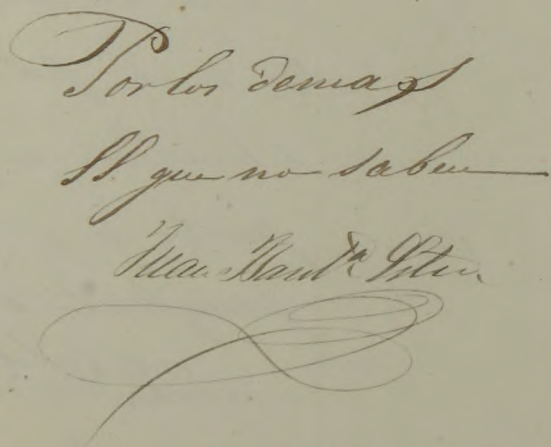 Por los demas
SS que no saben
Juan Baut.ª